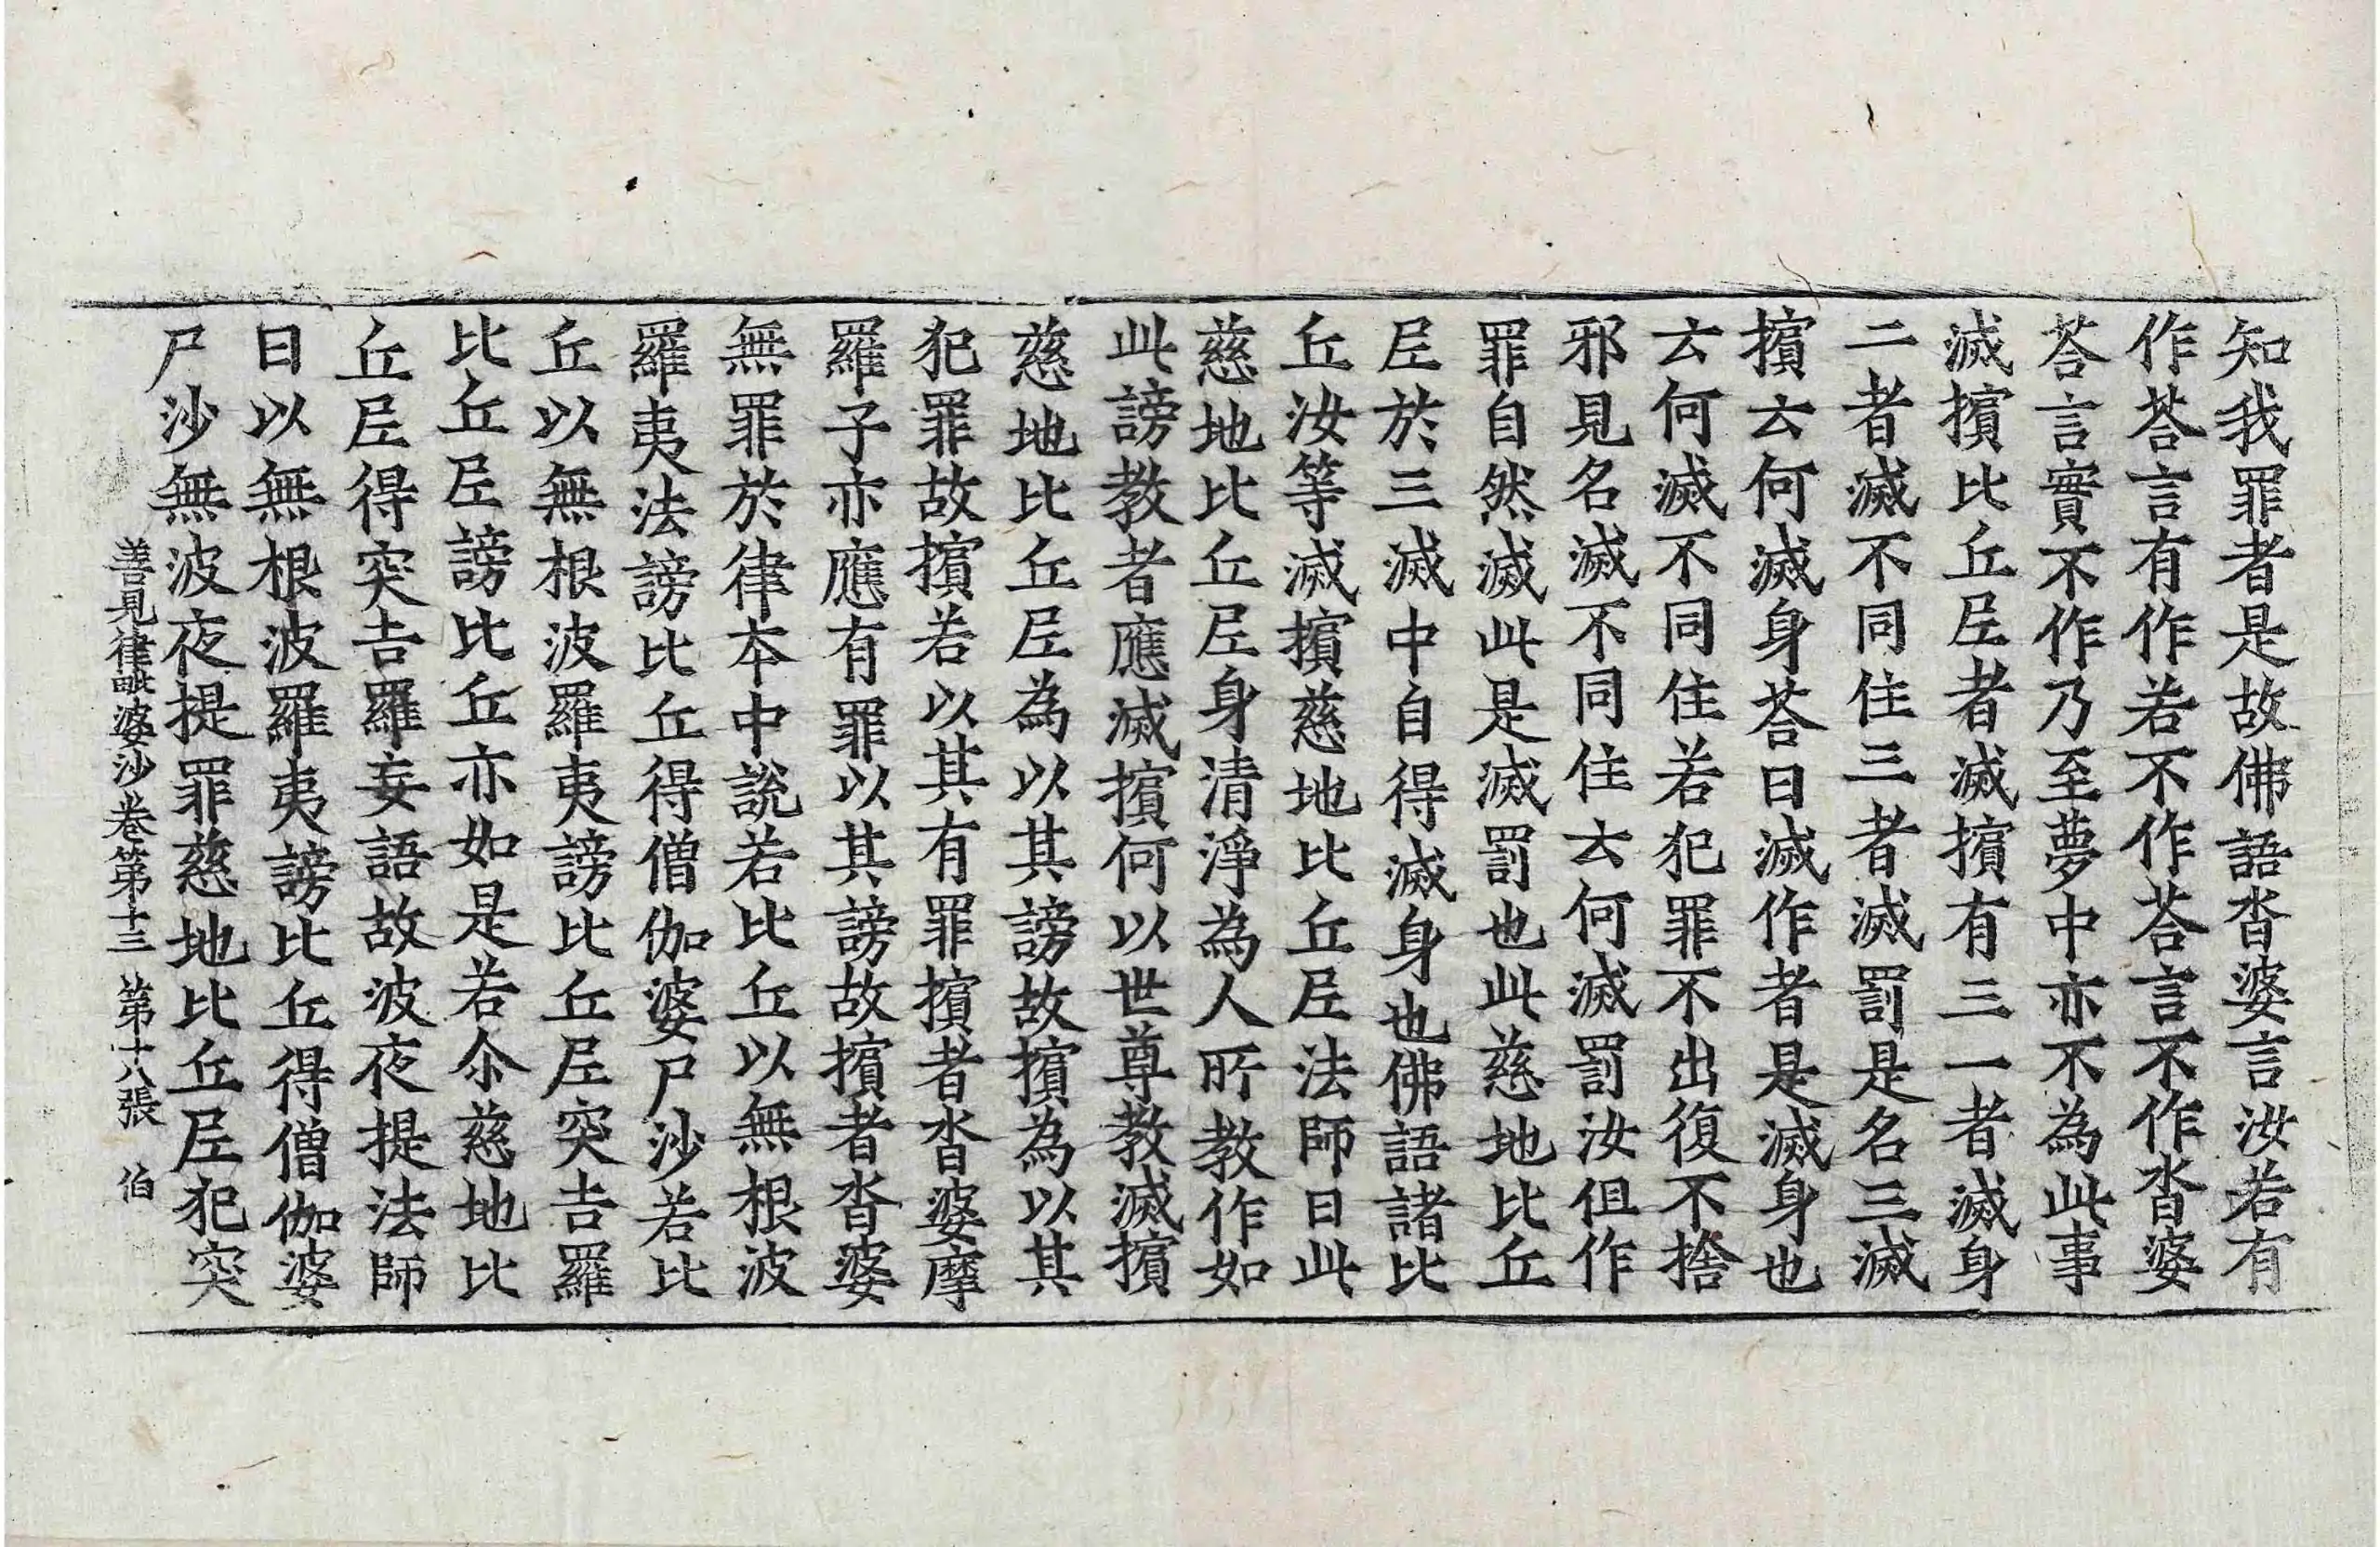 知我罪者是故佛語沓婆言汝若有
作荅言有作若不作荅言不作沓婆
荅言實不作乃至夢中亦不為此事
滅擯比丘𡰱者滅擯有三一者滅身
二者滅不同住三者滅罰是名三滅
擯云何滅身荅曰滅作者是滅身也
云何滅不同住若犯罪不出復不捨
邪見名滅不同住云何滅罰汝伹作
罪自然滅此是滅罰也此慈地比丘
𡰱於三滅中自得滅身也佛語諸比
丘汝等滅擯慈地比丘𡰱法師曰此
慈地比丘𡰱身清淨為人所教作如
此謗教者應滅擯何以世尊教滅擯
慈地比丘𡰱為以其謗故擯為以其
犯罪故擯若以其有罪擯者沓婆摩
羅子亦應有罪以其謗故擯者沓婆
無罪於律夲中說若比丘以無根波
羅夷法謗比丘得僧伽婆尸沙若比
丘以無根波羅夷謗比丘𡰱突吉羅
比丘𡰱謗比丘亦如是若尒慈地比
丘𡰱得突吉羅妄語故波夜提法師
曰以無根波羅夷謗比丘得僧伽婆
尸沙無波夜提罪慈地比丘𡰱犯突
善見律毗婆沙卷第十三 第十八張 伯